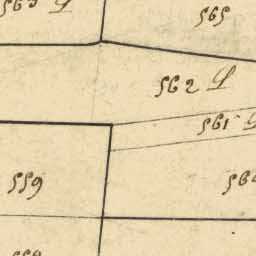 563 L
565
562 L
561 L
559
560
558